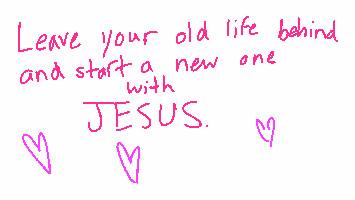 Leave your old life behind
and start a new one
with
JESUS.